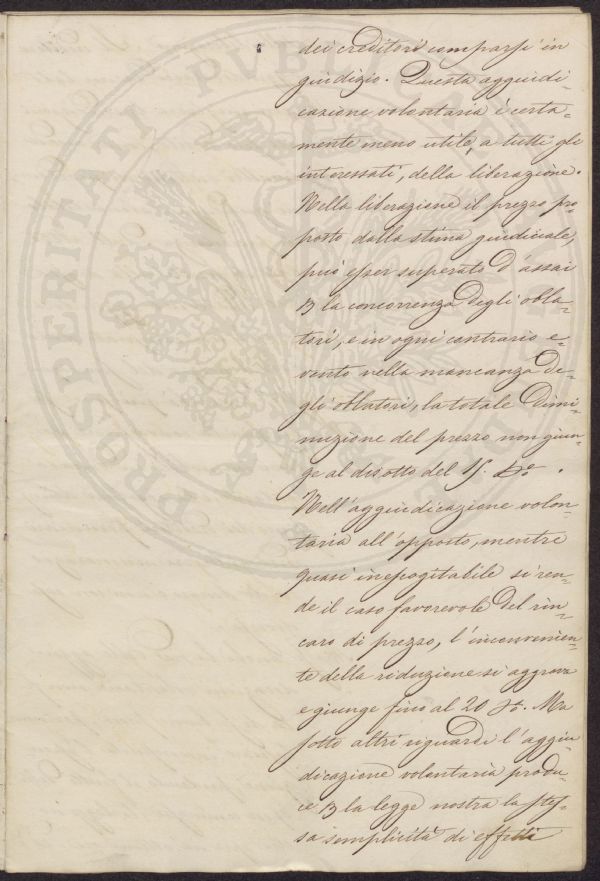 dei creditori comparsi in
giudizio. Questa aggiudi-
cazione volontaria è certa-
mente meno utile, a tutti gli
interessati, della liberazione.
Nella liberazione il prezzo pro-
posto dalla stima giudiciale,
può esser superato d'assai
la concorrenza degli obla-
tori, e in ogni contrario e-
vento nella mancanza de-
gli oblatori, la totale dimi-
nuzione del prezzo non giun-
ge al disotto del
Nell'aggiudicazione volon-
taria all'opposto, mentre
quasi si ren-
de il caso favorevole del rin-
caro di prezzo, l'inconvenien-
te della riduzione si aggrava
e giunge fino al 20 Ma
sotto altri riguardi l'aggiu-
dicazione volontaria produ-
ce la legge nostra la stes-
sa semplicità di effetti
PROSPERITATI PVBLICAE